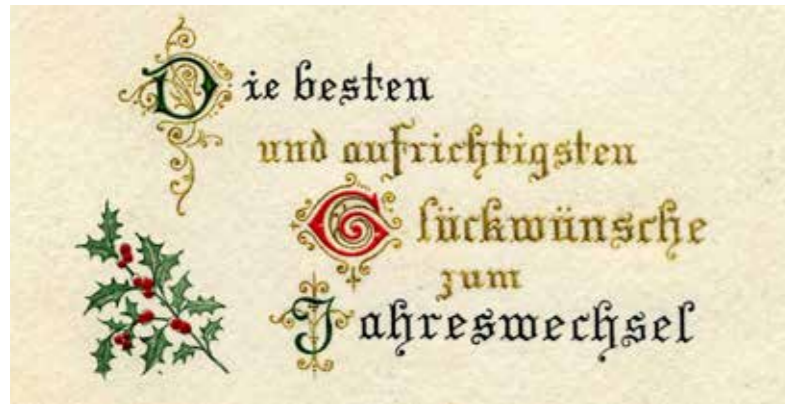 Die besten
und aufrichtigsten
Glückwünsche
zum
Jahreswechsel